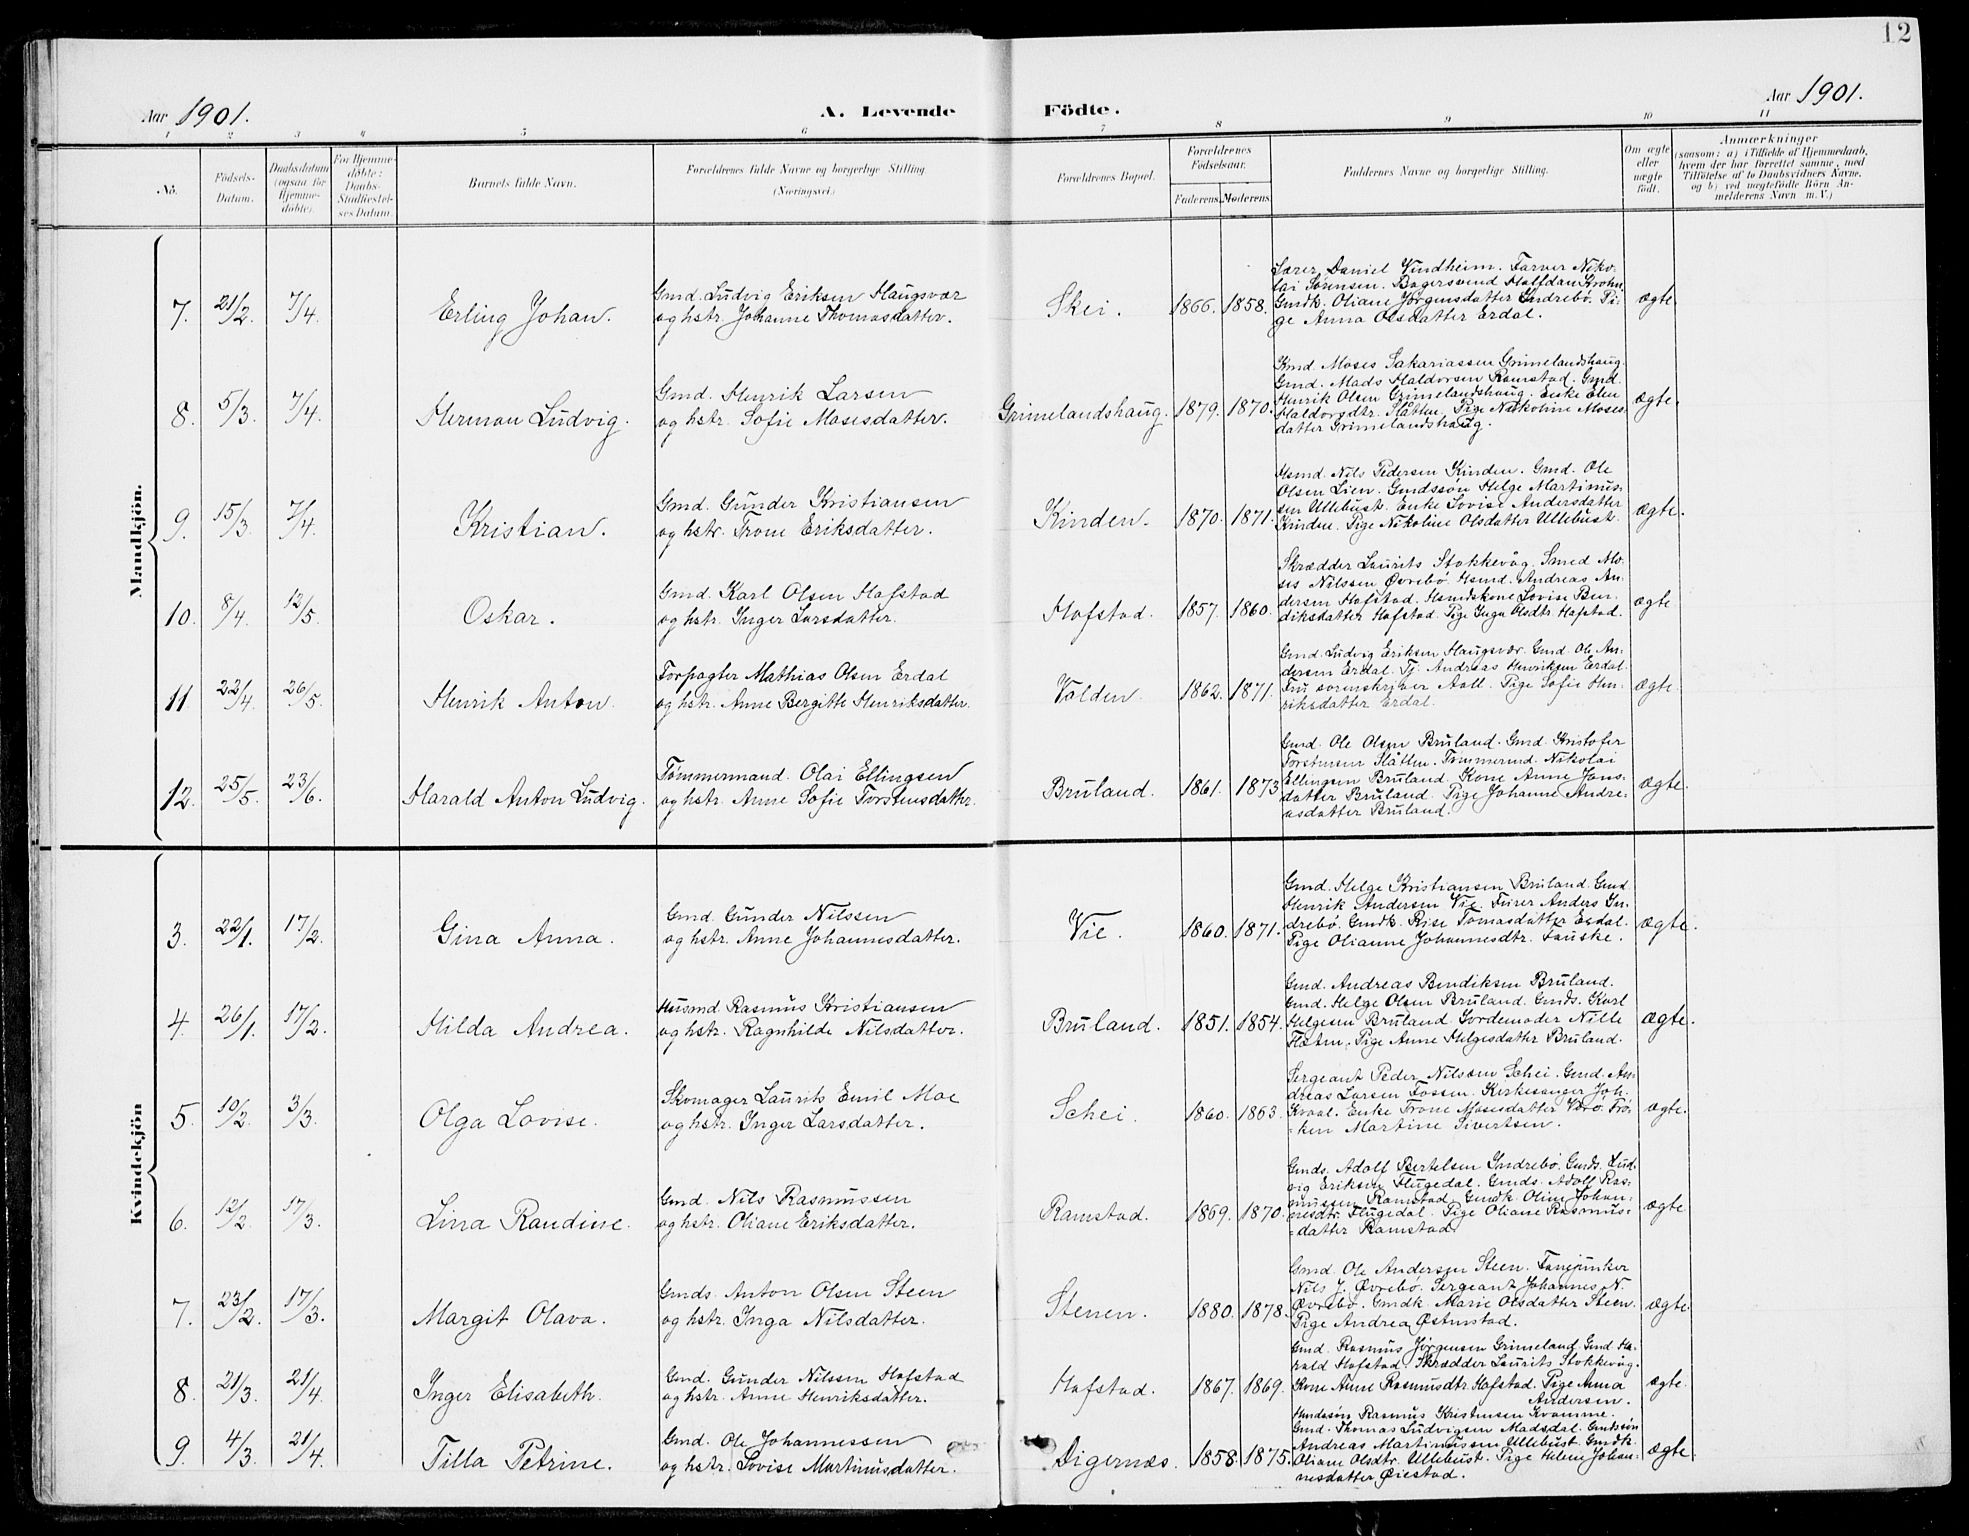 12
Aar 1901.
A. Levende
Födte.
Aar 1901.
1 2 3 4 5 6 7 8 9 10 11
No.
Födsels-Datum.
Daabsdatum (ogsaa for Hjemme-döbte).
For Hjemme-döbte: Daabs-Stadfæstel-ses Datum.
Barnets fulde Navn.
Forældrenes fulde Navne og borgerlige Stilling (Næringsvei.)
Forældrenes Bopæl.
Forældrenes Födselsaar.
Faderens. Moderens.
Faddernes Navne og borgerlige Stilling.
Om ægte eller uægte födt.
Anmærkninger
(saasom: a) i Tilfælde af Hjemmedaab, hvem der har forrettet samme, med Tilföielse af to Daabsvidners Navne, og b) ved uægtefödte Börn An-melderens Navn m. V.)
Mandkjön.
7. 21/2 7/4. Erling Johan. Gmd. Ludvig Eriksen Haugsvær og hstr. Johanne Thomasdatter. Skei. 1866. 1858. Lærer Daniel Vindheim. Farver Niko-
lai Sørensen. Bagersvend Halfdan Krohn
Gmdk. Oliane Jørgensdatter Indrebø. Pi-
ge Anna Olsdatter Erdal. ægte
8. 5/3. 7/4. Herman Ludvig. Gmd. Henrik Larsen og hstr. Sofie Mosesdatter. Grimelandshaug. 1879. 1870. Kmd. Moses Sakariassen Grimelandshaug.
Gmd. Mads Haldorsen Ramstad. Gmd.
Henrik Olsen Grimelandshaug. Enke Elen
Haldorsdtr. Slåtten. Pige Nikoline Moses-
datter Grimelandshaug. ægte.
9. 15/3. 7/4. Kristian. Gmd. Gunder Kristiansen og hstr. Trone Eriksdatter. Kinden. 1870. 1871. Hsmd. Nils Pedersen Kinden. Gmd. Ole
Olsen Lien. Gmdssøn Helge Martinus-
sen Ullebust. Enke Lovise Andersdatter
Kinden. Pige Nikoline Olsdatter Ullebust. ægte.
10. 8/4. 12/5. Oskar. Gmd. Karl Olsen Hafstad og hstr. Inger Larsdatter. Hofstad. 1857. 1860. Skrædder Laurits Stokkevåg. Smed Mo-
ses Nilssen Øvrebø. Hsmd. Andreas An-
dersen Hofstad. Hsmdskone Lovise Ben-
diksdatter Hofstad. Pige Inga Olsdtr Hofstad. ægte
11 22/4. 26/5. Henrik Anton. Forpagter Mathias Olsen Erdal og hstr. Anne Bergitte Henriksdatter. Volden. 1862. 1871. Gmd. Ludvig Eriksen Haugsvær. Gmd. Ole An-
dersen Erdal. Tj. Andreas Henriksen Erdal.
Fru sorenskriver Aall. Pige Sofie Hen-
riksdatter Erdal. ægte.
12. 25/5. 23/6. Harald Anton Ludvig. Tømmermand. Olai Ellingsen og hstr. Anne Sofie Torstensdatter. Bruland. 1861. 1873 Gmd. Ole Olsen Bruland. Gmd. Kristofer
Torstensen Slåtten. Tømmermd. Nikolai
Ellingsen Bruland. Kone Anne Jens-
datter Bruland. Pige Johanne Andre-
asdatter Bruland. ægte.
Kvindekjön
3. 22/1. 17/2. Gina Anna. Gmd. Gunder Nilssen og hstr. Anne Johannesdatter. Vie. 1860. 1871. Gmd. Helge Kristiansen Bruland. Gmd.
Henrik Andersen Vie. Furer Anders In-
drebø. Gmdk. Rise Tomasdatter Erdal.
Pige Olianne Johannesdtr. Fauske. ægte.
4. 26/1. 17/2. Hilda Andrea. Husmd Rasmus Kristiansen og hstr. Ragnhilde Nilsdatter. Bruland. 1851. 1854. Gmd. Andreas Bendiksen Bruland.
Gmd. Helge Olsen Bruland. Gmds. Karl
Helgesen Bruland. Jordemoder Nille
Flaten. Pige Anne Helgesdatter Bruland. ægte.
5. 10/2. 3/3. Olga Lovise. Skomager Laurits Emil Moe og hstr. Inger Larsdatter. Schei. 1860. 1863. Sergeant Peder Nilssen Schei. Gmd. An-
dreas Larsen Fossen. Kirkesanger Joh.
Kvaal. Enke Trone Mosesdatter Værø. Frø-
ken Martine Sivertsen. ægte.
6. 12/2. 17/3. Lina Raudine. Gmd. Nils Rasmussen og hstr. Oliane Eriksdatter. Ramstad. 1869. 1870. Gmds. Adolf Bertelsen Indrebø. Gmds. Lud-
vig Eriksen Flugedal. Gmds. Adolf Ras-
mussen Ramstad. Gmdk. Oline Johan-
nesdtr. Flugedal. Pige Oliane Rasmus-
datter Ramstad. ægte
7. 23/2. 17/3. Margit Olava. Gmds. Anton Olsen Steen og hstr. Inga Nilsdatter. Stenen. 1880. 1878. Gmd. Ole Andersen Steen. Fanejunker
Nils J. Øvrebø. Sergeant Johannes N.
Øvrebø. Gmdk. Marie Olsdatter Steen.
Pige Andrea Østenstad. ægte
8. 21/3. 21/4 Inger Elisabeth. Gmd. Gunder Nilssen Hofstad og hstr. Anne Henriksdatter. Hofstad. 1867. 1869. Gmd. Rasmus Jørgensen Grimeland. Gmd. Ha-
rald Hofstad. Skrædder Laurits Stokkevåg.
Kone Anne Rasmusdtr. Hofstad. Pige Anna
Andersen. ægte.
9. 4/3. 21/4. Tilla Petrine. Gmd. Ole Johannessen og hstr. Lovise Martinusdatter. Digernæs. 1858. 1875. Rasmus Kristensen Kvamme.
Gmd. Thomas Ludvigsen Madsdal. Gmdssøn
Andreas Martinussen Ullebust. Gmdk.
Oliane Olsdtr. Ullebust. Pige Helene Johan-
nesdatter Øiestad. ægte